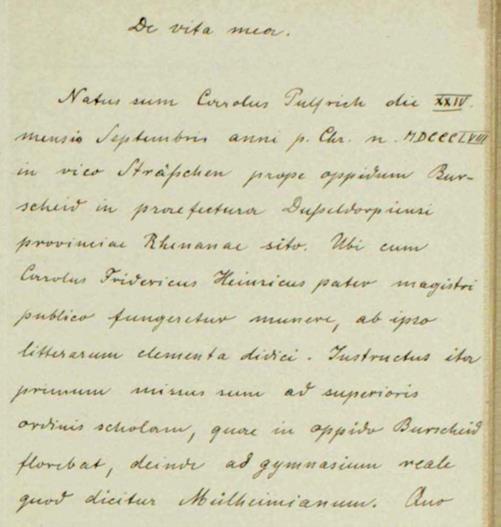 De vita mea.
Natus sum Carolus Pulfrich die XXIV.
mensis Septembris anni p. Chr. n. MDCCCLVIII
in vico Sträßchen prope oppidum Bur-
scheid in praefectura Dußeldorpiensi
provinciae Rhenanae sito. Ubi cum
Carolus Fridericus Heinricus pater magistri
publico fungeretur munere, ab ipso
litterarum elementa didici. Instructus ita
primum missus sum ad superioris
ordinis scholam, quae in oppido Burscheid
florebat, deinde ad gymnasium reale
quod dicitur Mülheimianum. Quo